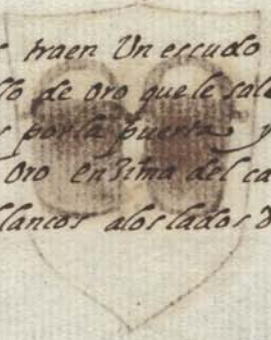 traen Un escudo
llo de oro que le sale
por la puerta y
Oro enzima del ca
lancos a los lados d